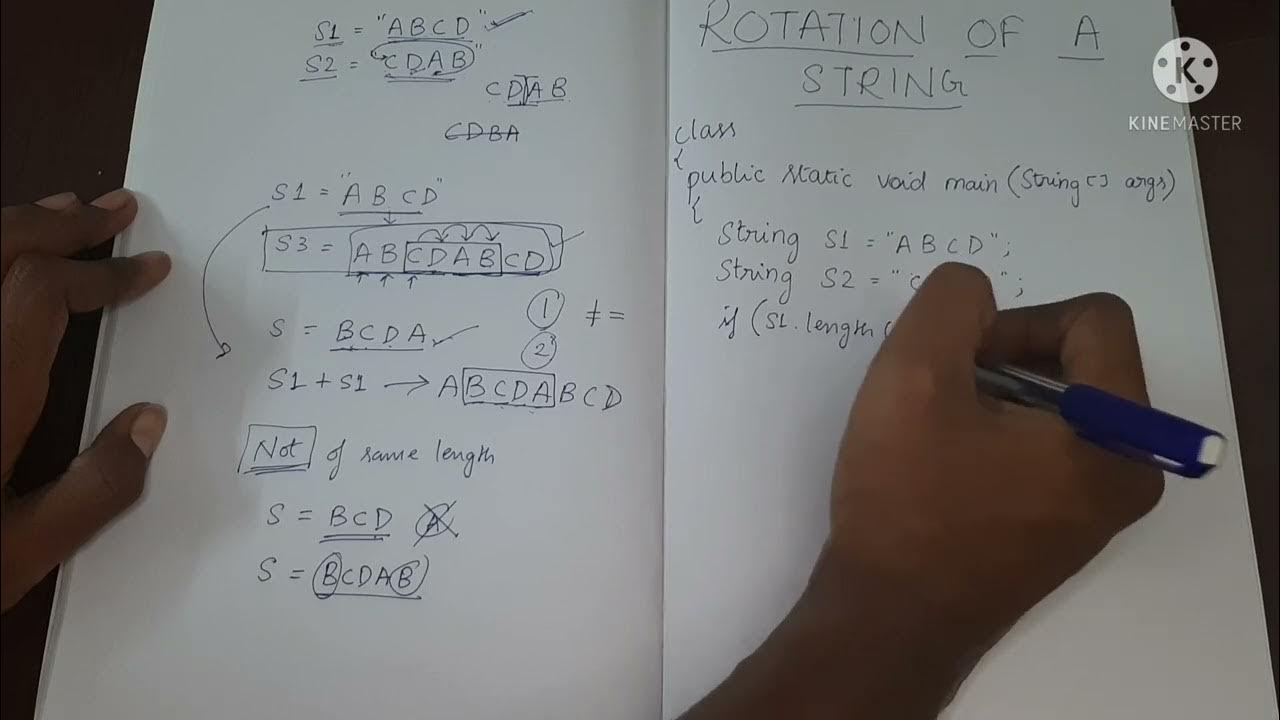 S1 = "ABCD"
S2 = "CDAB"
CDAB
CDBA
S1 = "ABCD"
S3 = ABCDABCD
S = BCDA
1 ≠=
2
S1+S1 → ABCDABCD
Not of same length
S = BCD A
S = BCDAB
ROTATION OF A
STRING
class
{
public static void main (String[] args)
{
String S1 = "ABCD";
String S2 = "C ";
if (S1.length(
KINEMASTER